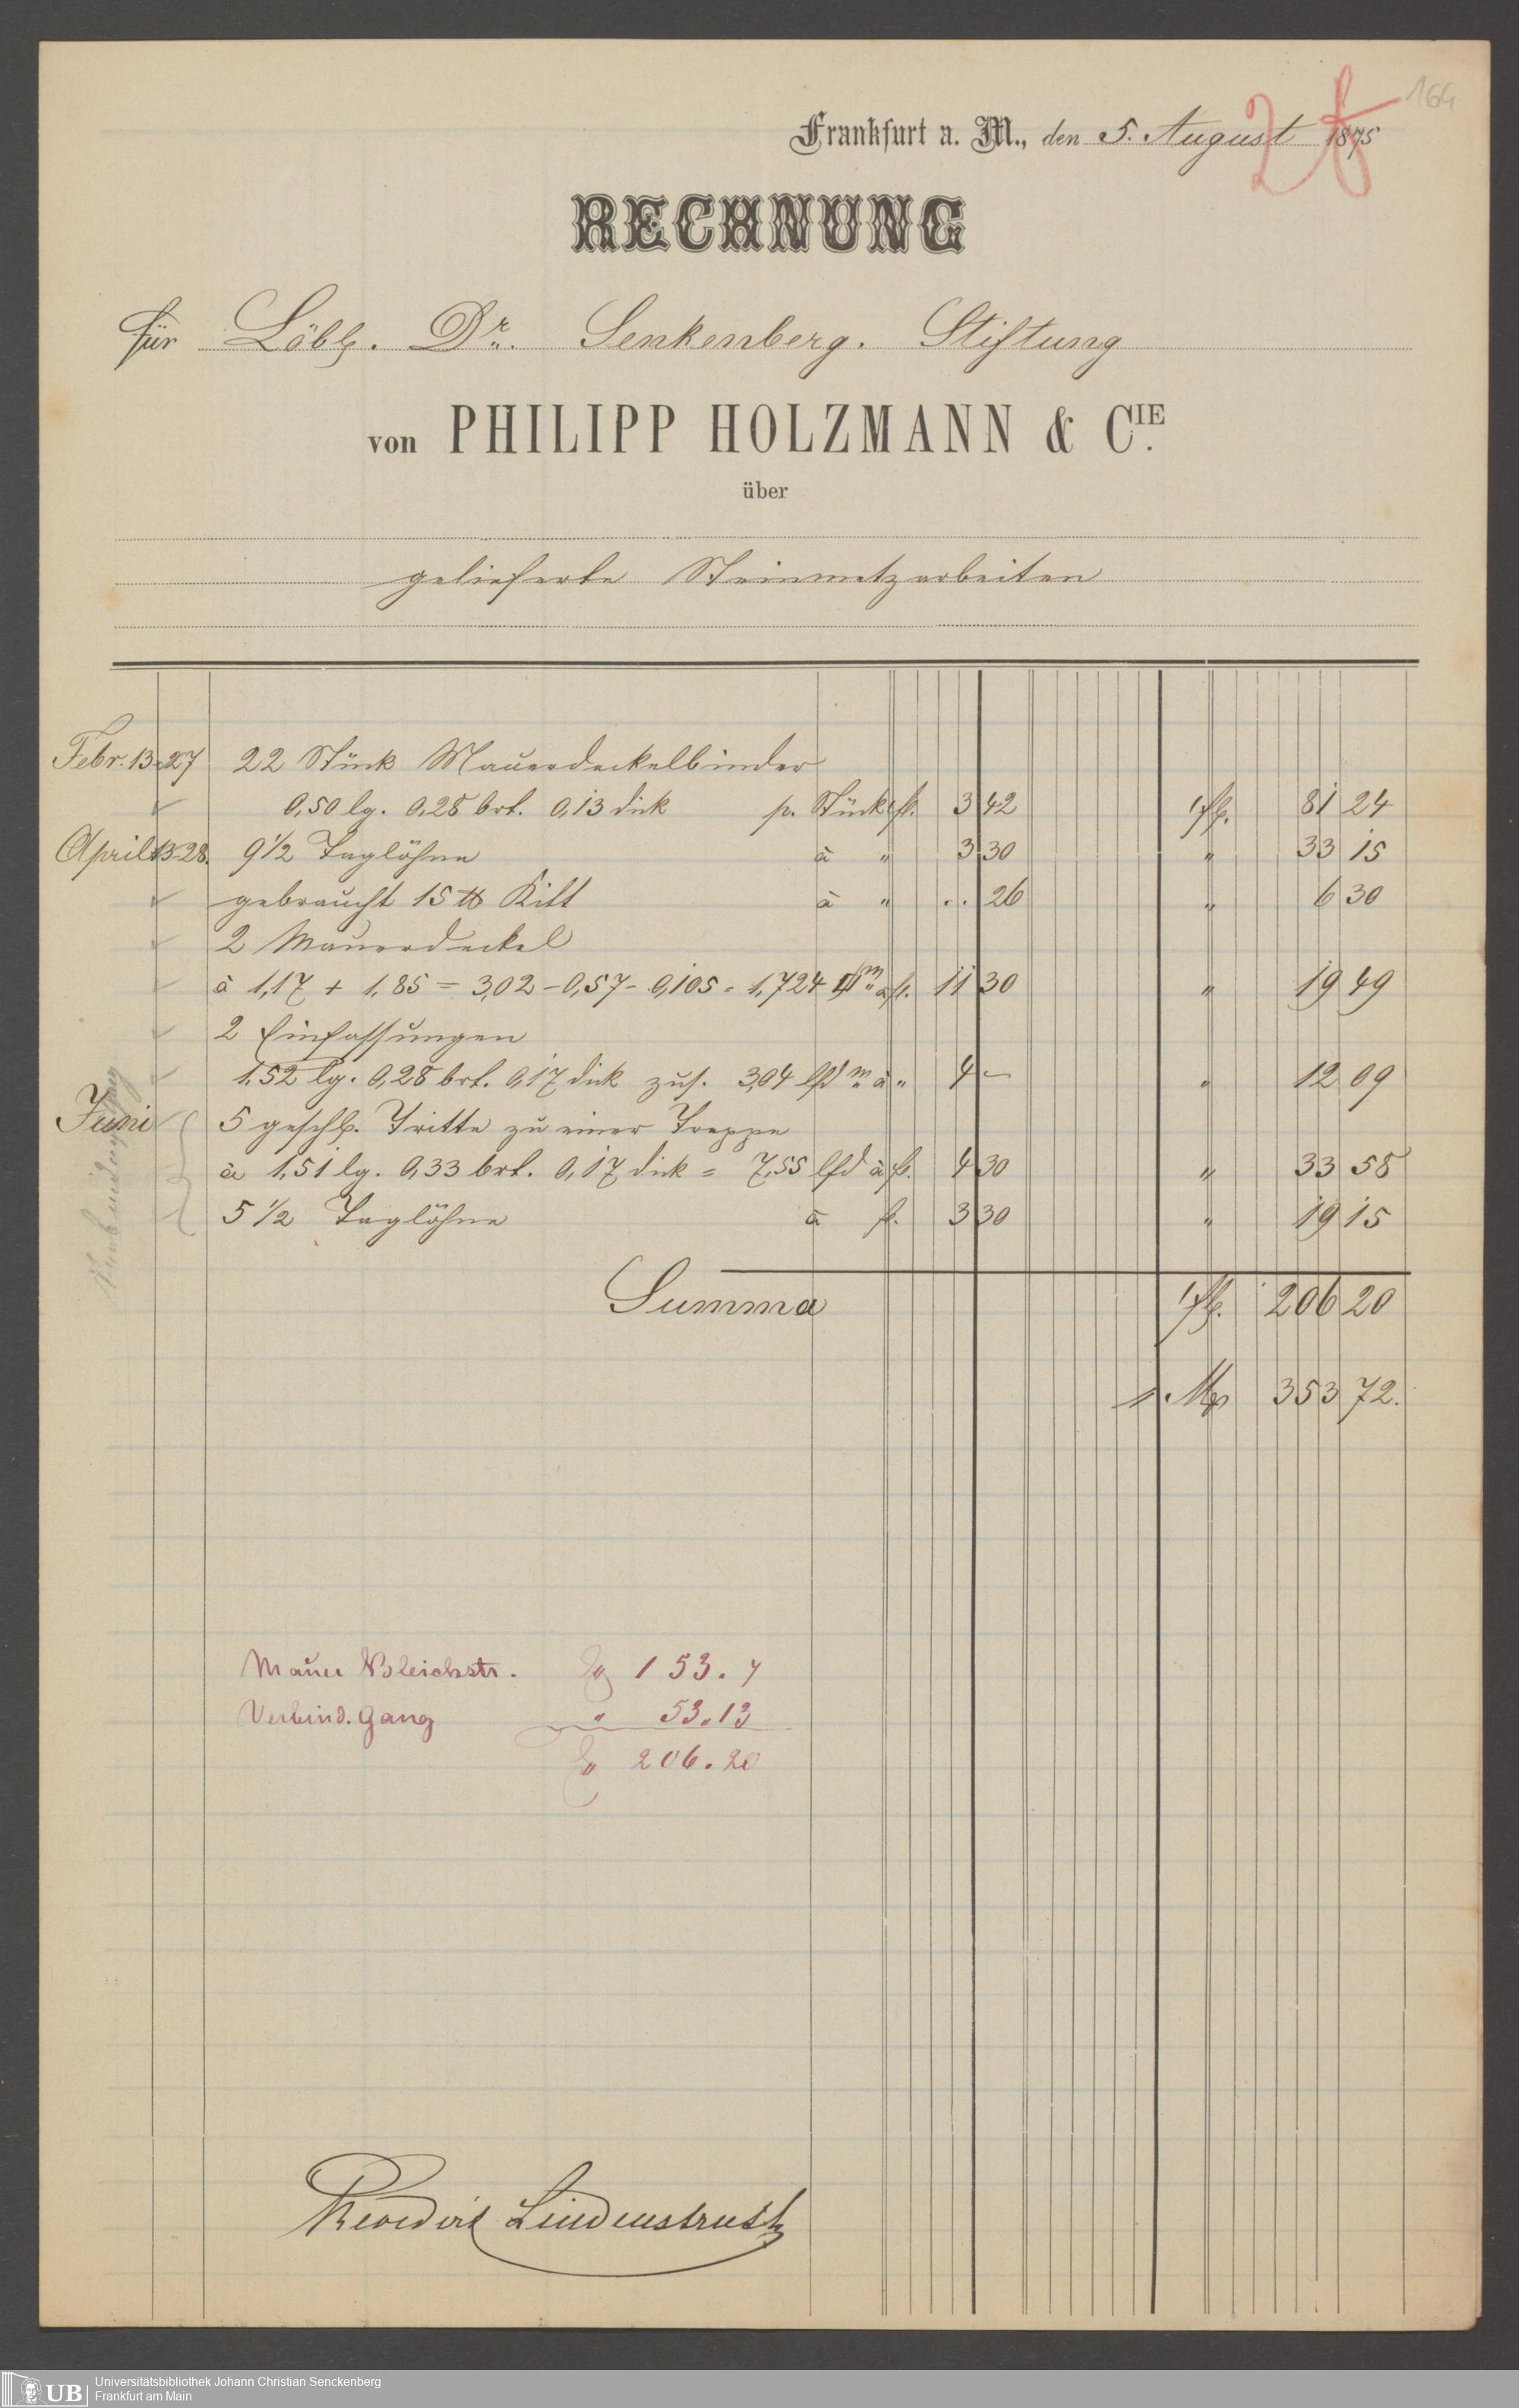 164
Frankfurt a. M., den 5. August 1875
RECHNUNG
für Löbl. Dr. Senkenberg. Stiftung
von PHILIPP HOLZMANN & CIE.
über
gelieferte Steinmetzarbeiten
Febr. 13-27 22 Stück Mauerdeckelbinder
0,50 lg. 0,28 brt. 0,13 dick p. Stück fl. 3 42 fl. 81 24
April 13-28. 9 1/2 Taglöhne à " 3 30 " 33 15
gebraucht 15 ℔ Kitt à " .. 26 " 6 30
2 Mauerdeckel
à 1,17 + 1,85 = 3,02 - 0,57 - 0,105 = 1,724 □m à fl. 11 30 " 19 49
2 Einfassungen
1,52 lg. 0,28 brt. 0,17 dick zus. 3,04 lfd m à " 4 — " 12 09
Juni 5 geschl. Tritte zu einer Treppe
à 1,51 lg. 0,33 brt. 0,17 dick = 7,55 lfd à fl. 4 30 " 33 58
5 1/2 Taglöhne à fl. 3 30 " 19 15
Verbindungsgang
Summa fl. 206 20
M 353 72.
Mauer Bleichstr. fl 153. 7
Verbind. Gang " 53.13
fl 206. 20
Lindenstruth
UB Universitätsbibliothek Johann Christian Senckenberg
Frankfurt am Main